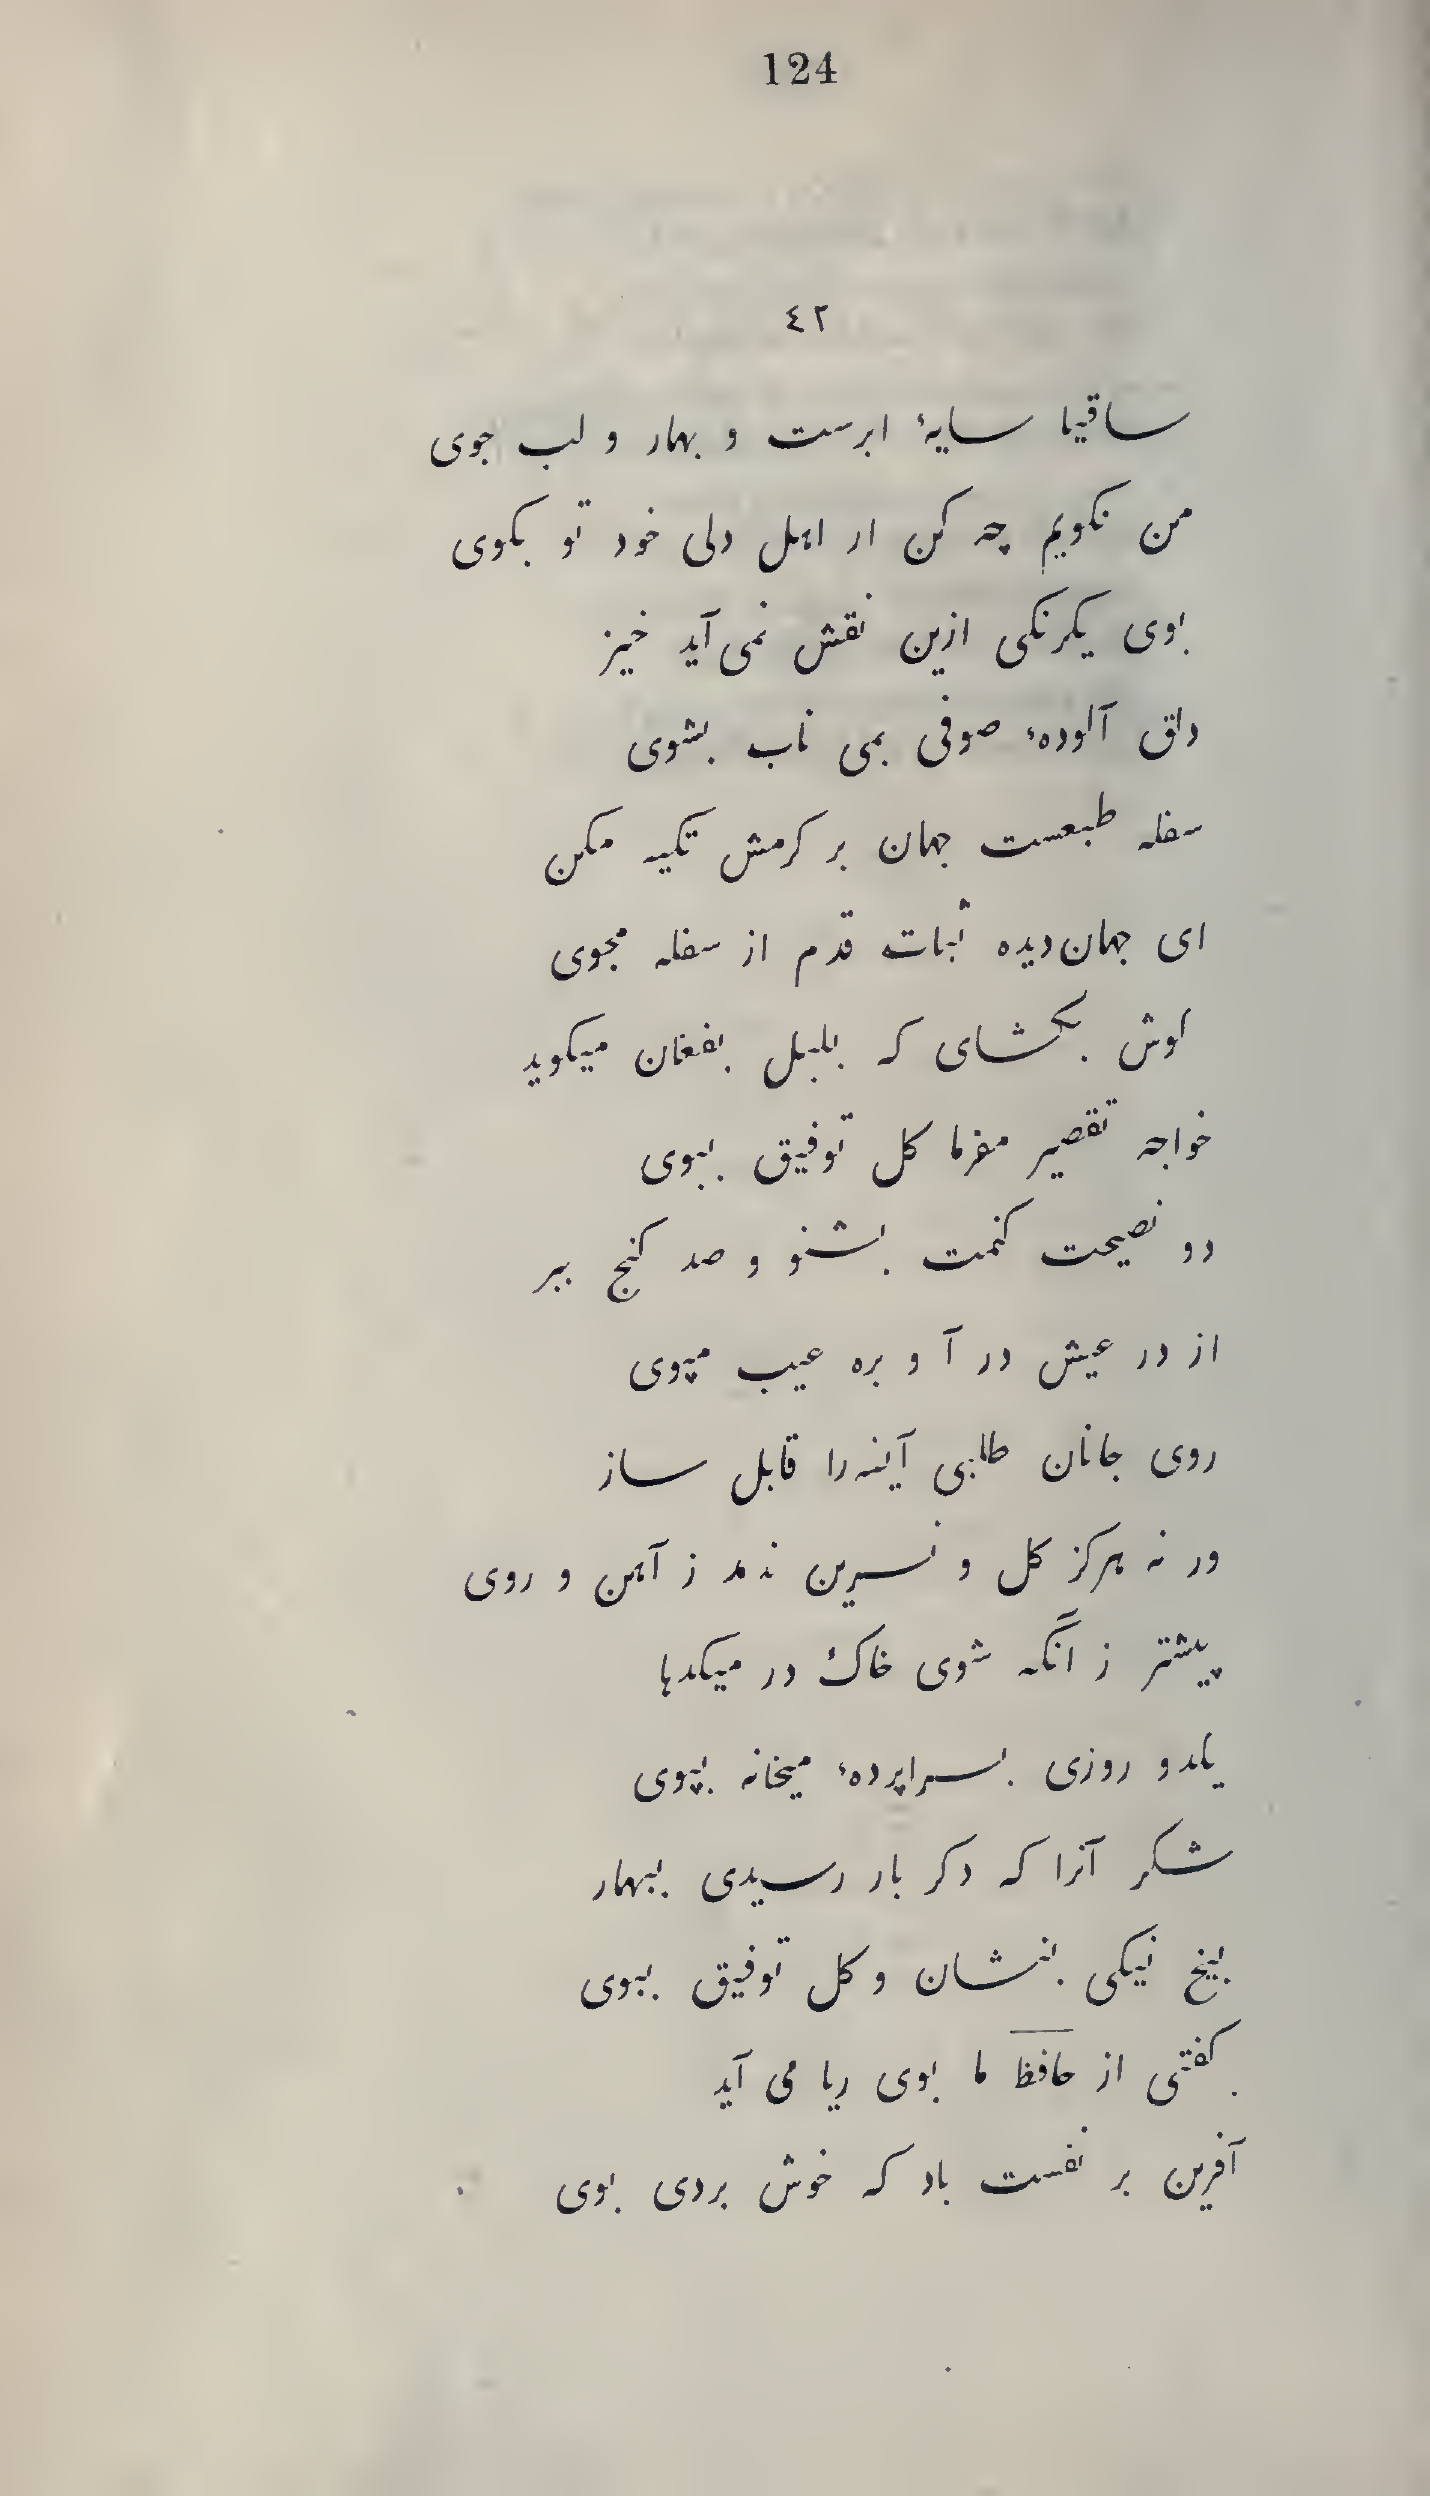 124
٤٢
ساقیا سایهٔ ابرست و بهار و لب جوی
من نکویم چه کن ار اهل دلی خود تو بکوی
بوی یکرنکی ازین نقش نمی‌آید خیز
دلق آلودهٔ صوفی بمی ناب بشوی
سفله طبعست جهان بر کرمش تکیه مکن
ای جهان‌دیده ثبات قدم از سفله مجوی
کوش بکشای که بلبل بفغان میکوید
خواجه تقصیر مفرما کل توفیق ببوی
دو نصیحت کنمت بشنو و صد کنج ببر
از در عیش در آ و بره عیب مپوی
روی جانان طلبی آینه‌را قابل ساز
ور نه هرکز کل و نسرین ندمد ز آهن و روی
پیشتر ز انگه شوی خاک در میکدها
یکدو روزی بسراپردهٔ میخانه بپوی
شکر آنرا که دکر بار رسیدی ببهار
بیخ نیکی بنشان و کل توفیق ببوی
کفتی از حافظ ما بوی ریا می آید
آفرین بر نفست باد که خوش بردی بوی